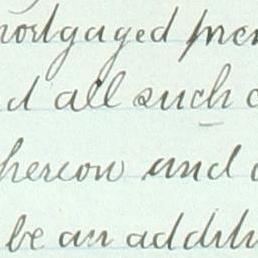 mortgaged prem
d all such
hereon and
be an addit